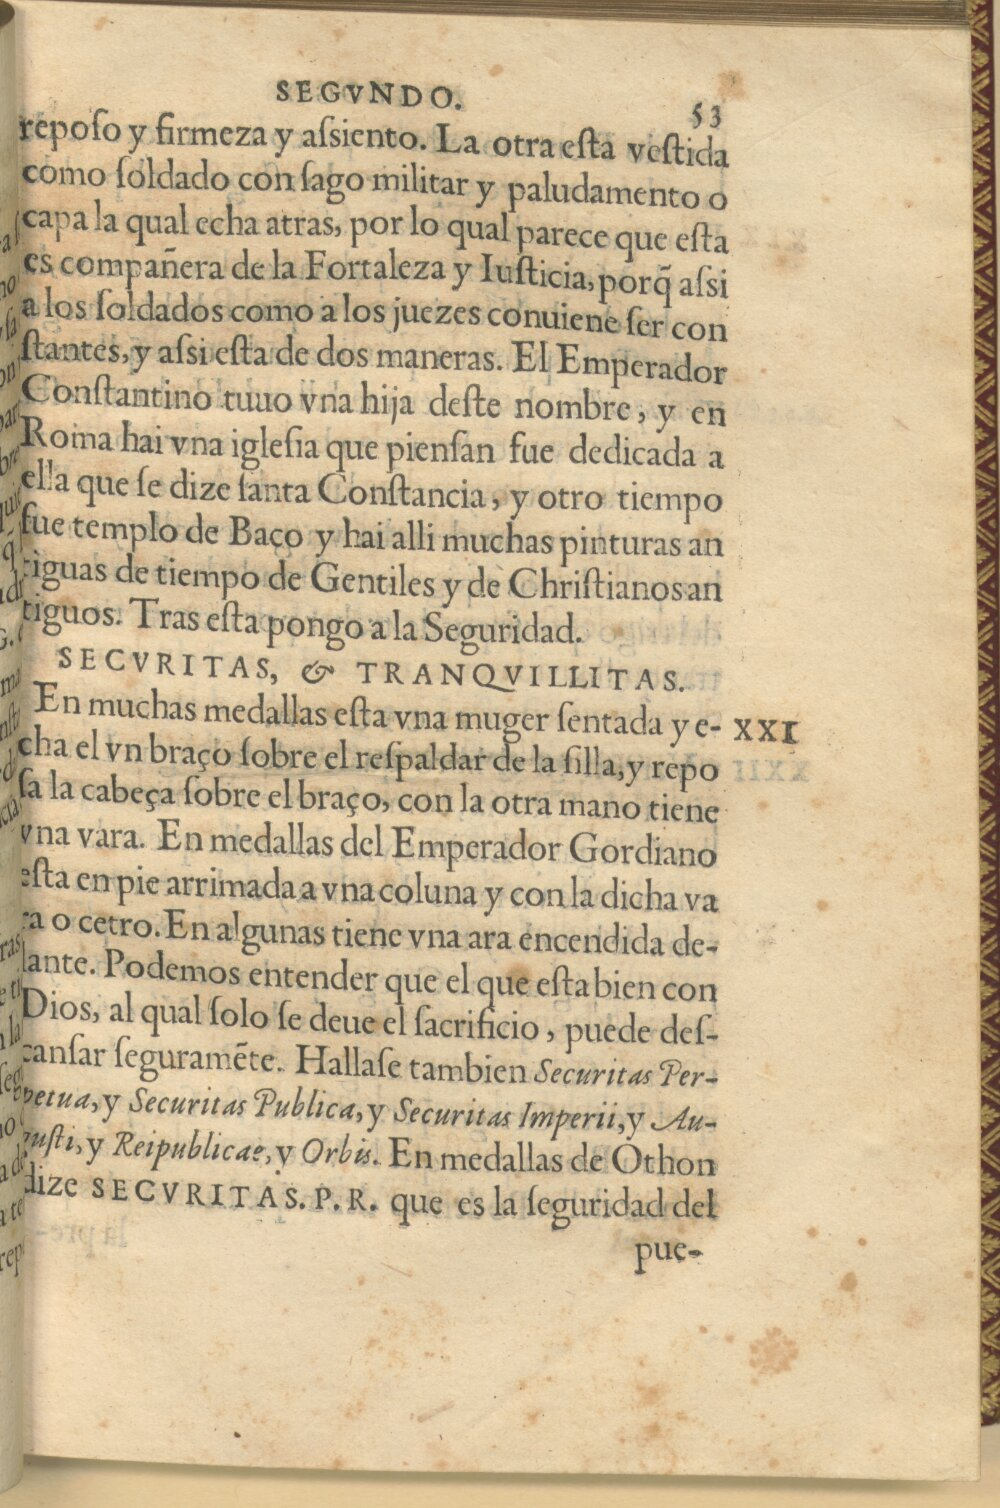 SEGVNDO.
53
reposo y firmeza y assiento. La otra esta vestida
como soldado con sago militar y paludamento o
capa la qual echa atras, por lo qual parece que esta
es compañera de la Fortaleza y Iusticia, porq̃ assi
a los soldados como a los juezes conuiene ser con
stantes, y assi esta de dos maneras. El Emperador
Constantino tuuo vna hija deste nombre, y en
Roma hai vna iglesia que piensan fue dedicada a
ella que se dize santa Constancia, y otro tiempo
fue templo de Baco y hai alli muchas pinturas an
tiguas de tiempo de Gentiles y de Christianos an
tiguos. Tras esta pongo a la Seguridad.
SECVRITAS, & TRANQVILLITAS.
En muchas medallas esta vna muger sentada y e- XXI
cha el vn braço sobre el respaldar de la silla, y repo
sa la cabeça sobre el braço, con la otra mano tiene
vna vara. En medallas del Emperador Gordiano
esta en pie arrimada a vna coluna y con la dicha va
ra o cetro. En algunas tiene vna ara encendida de-
lante. Podemos entender que el que esta bien con
Dios, al qual solo se deue el sacrificio, puede des-
cansar seguramẽte. Hallase tambien Securitas Per-
petua, y Securitas Publica, y Securitas Imperii, y Au-
gusti, y Reipublicae, y Orbis. En medallas de Othon
dize SECVRITAS. P. R. que es la seguridad del
pue-